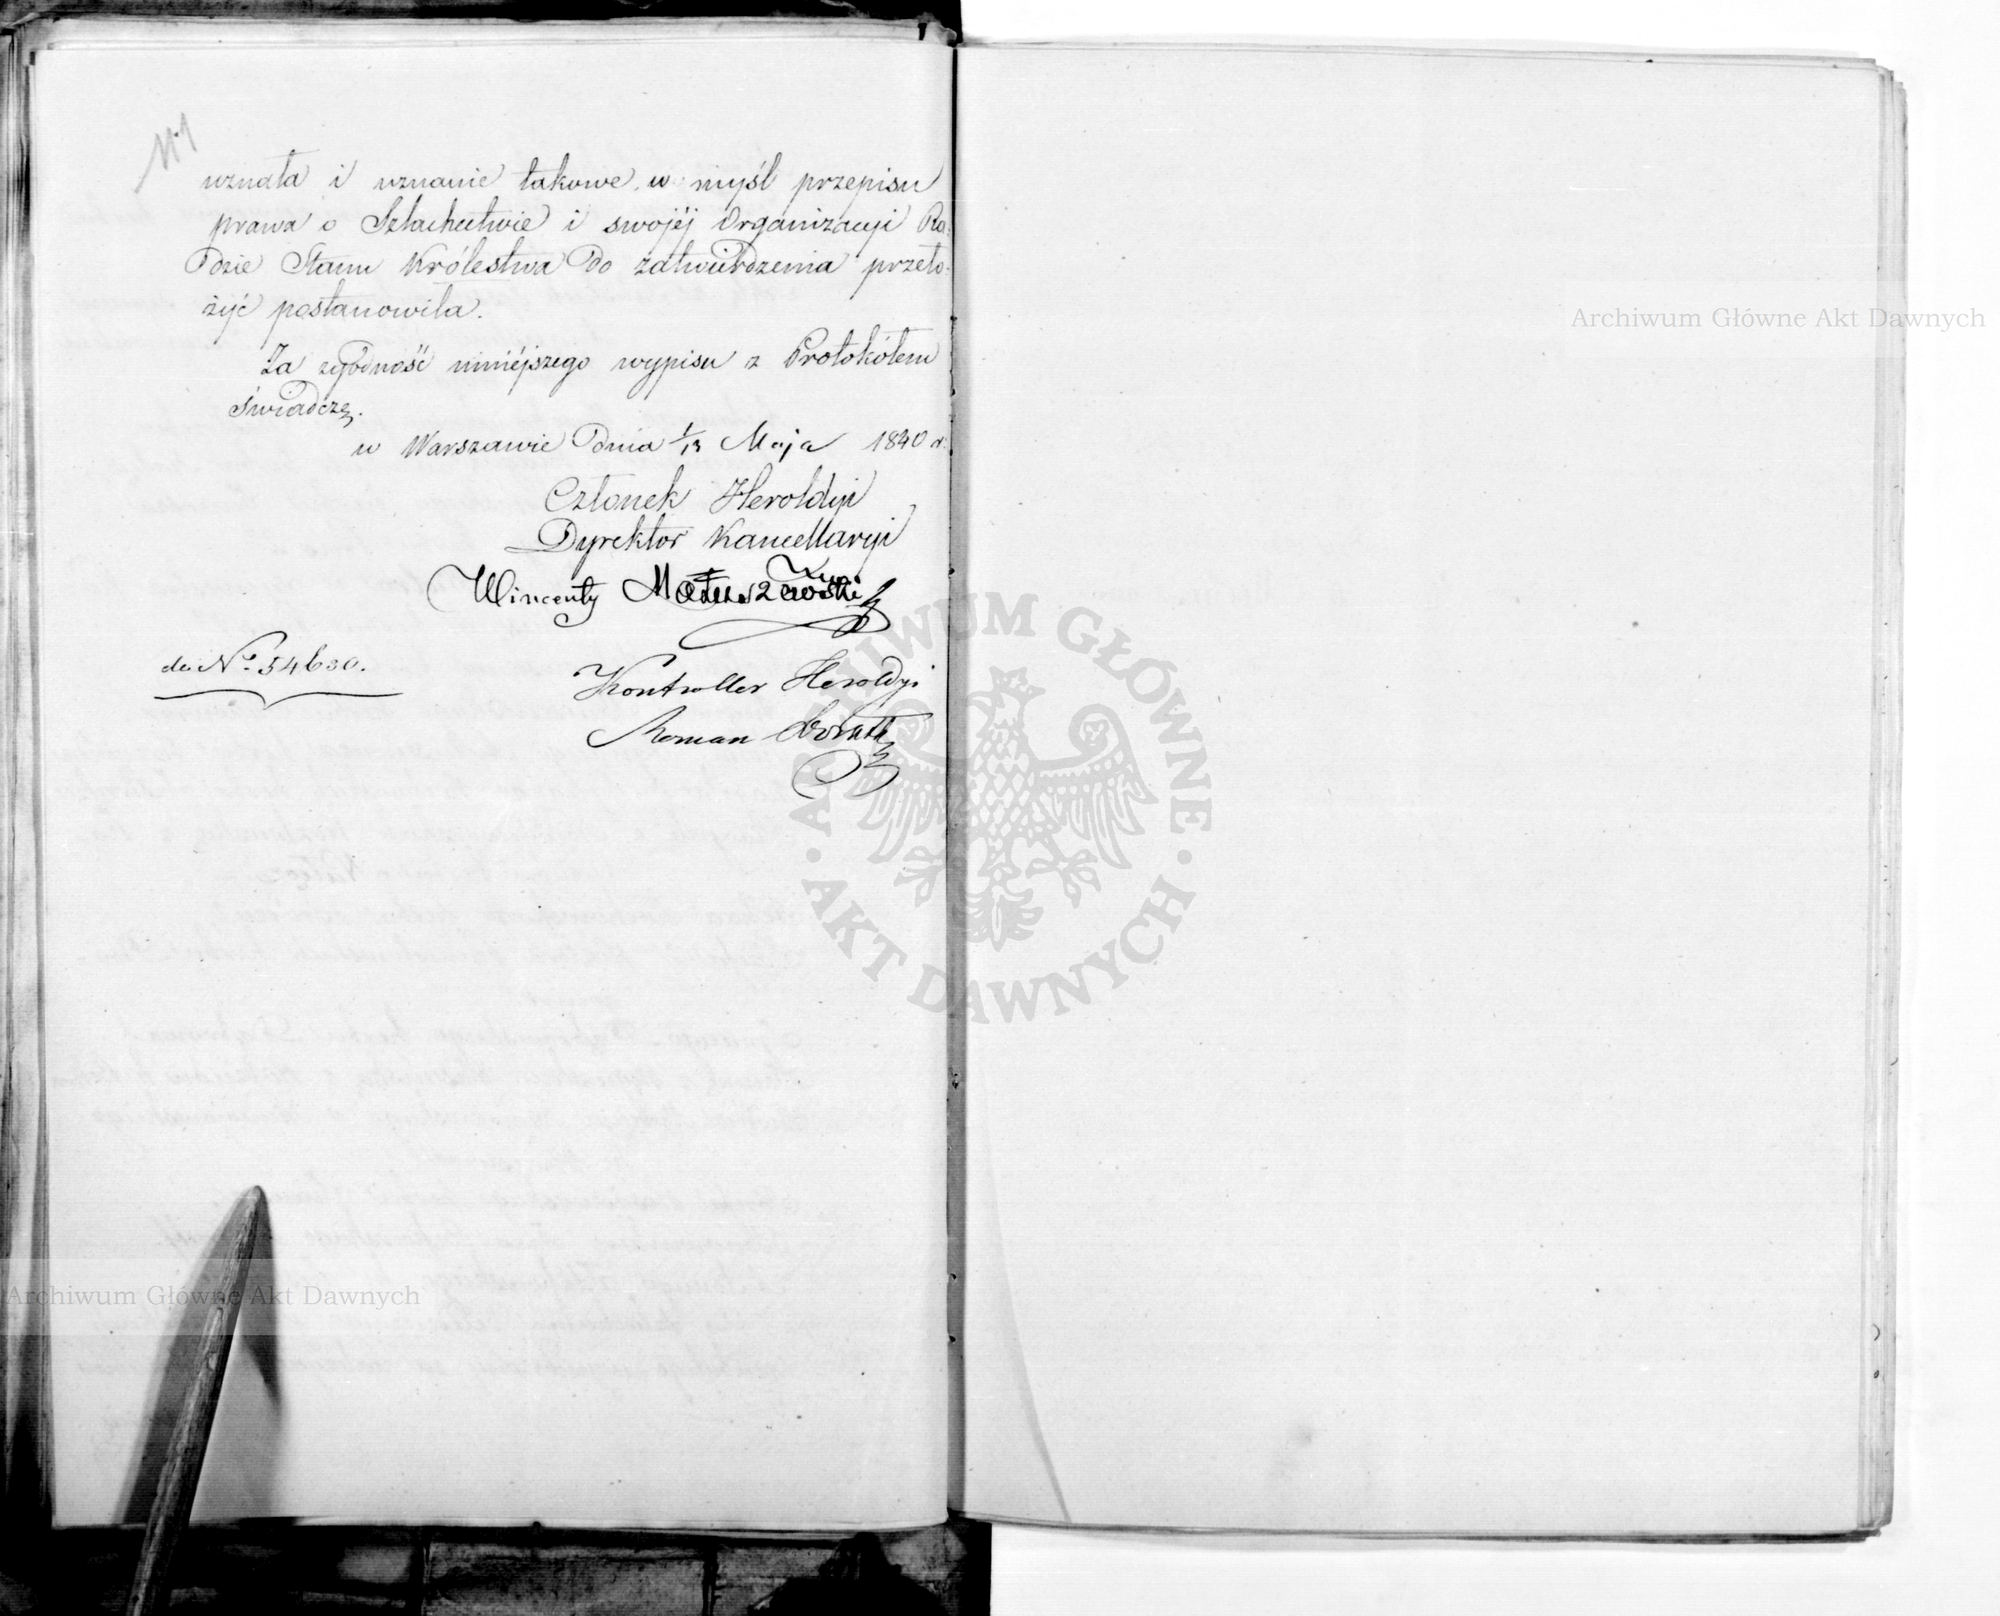 uznała i uznanie takowe w myśl przepisu
prawa o Szlachectwie i swojéj Organizacyi Ra-
dzie Stanu Królestwa do zatwierdzenia przeło-
żyć postanowiła.
Za zgodność niniéjszego wypisu z Protokółem
świadczę.
w Warszawie dnia 1/13 Maja 1840 r.
Członek Heroldyi
Dyrektor Kancellaryi
Wincenty Matuszewski
do No 54630.
Kontroller Heroldyi
Roman
Archiwum Główne Akt Dawnych
ARCHIWUM GŁÓWNE AKT DAWNYCH
Archiwum Główne Akt Dawnych